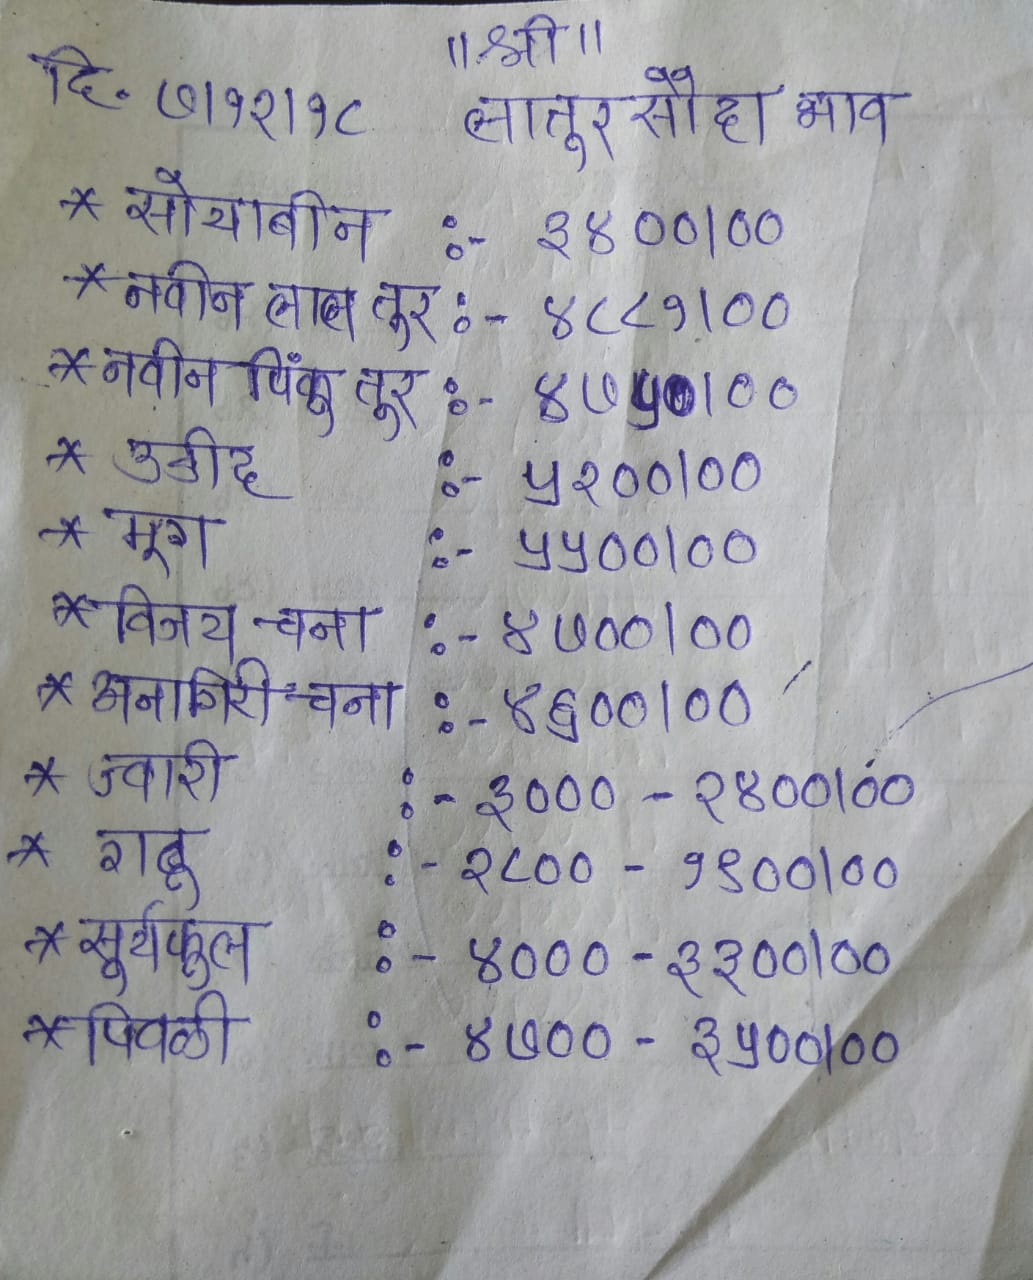 ॥श्री॥
दि. ७।१२।१८ लातुर सौदा भाव
* सोयाबीन :- ३४००।००
* नवीन लाल तुर :- ४८८१।००
* नवीन पिंकू तूर :- ४७५०।००
* उडीद :- ५२००।००
* मूग :- ५५००।००
* विजय चना :- ४७००।००
* अनागिरी चना :- ४६००।००
* ज्वारी :- ३००० - २४००।००
* गहू :- २८०० - १९००।००
* सूर्यफुल :- ४००० - ३३००।००
* पिवळी :- ४७०० - ३५००।००